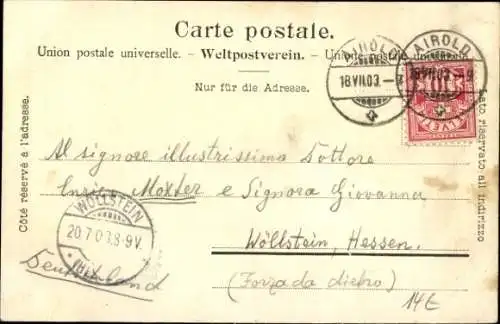 Carte postale.
Union postale universelle. - Weltpostverein. - Unione postale universale.
Nur für die Adresse.
AIROLO
18.VII.03.-9
AIROLO
18.VII.03.-9
Côté réservé à l'adresse.
Lato riservato all'indirizzo
Al signore illustrissimo Dottore
Moxter e Signora Giovanna
WÖLLSTEIN
20.7.03.8-9V.
Wöllstein, Hessen.
Deutschland
(Forzada dietro)
14E